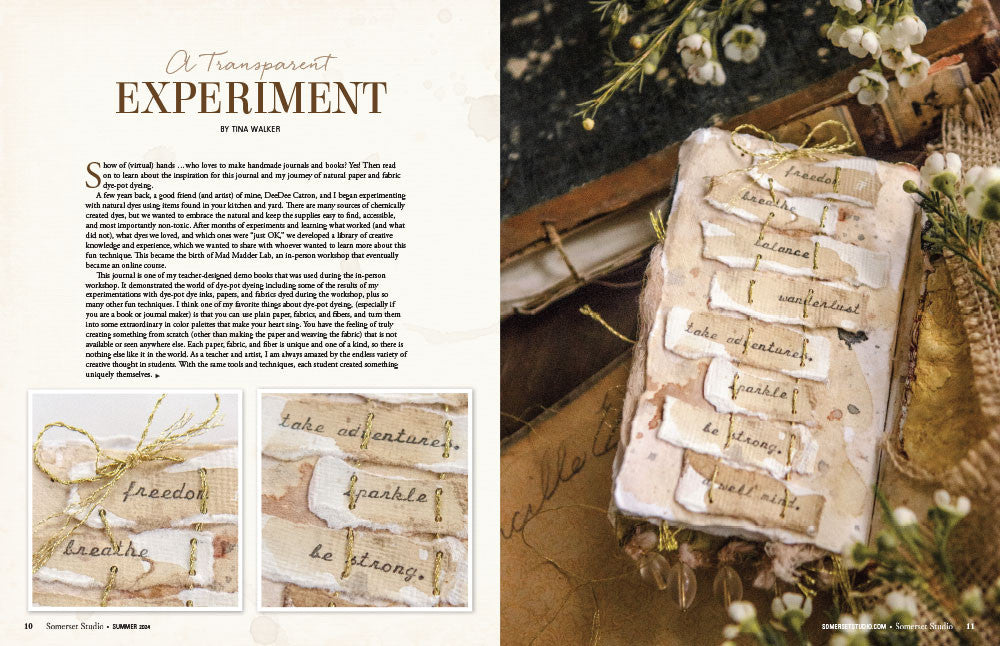 A Transparent
EXPERIMENT
BY TINA WALKER
Show of (virtual) hands …who loves to make handmade journals and books? Yes! Then read
on to learn about the inspiration for this journal and my journey of natural paper and fabric
dye-pot dyeing.
A few years back, a good friend (and artist) of mine, DeeDee Catron, and I began experimenting
with natural dyes using items found in your kitchen and yard. There are many sources of chemically
created dyes, but we wanted to embrace the natural and keep the supplies easy to find, accessible,
and most importantly non-toxic. After months of experiments and learning what worked (and what
did not), what dyes we loved, and which ones were "just OK," we developed a library of creative
knowledge and experience, which we wanted to share with whoever wanted to learn more about this
fun technique. This became the birth of Mad Madder Lab, an in-person workshop that eventually
became an online course.
This journal is one of my teacher-designed demo books that was used during the in-person
workshop. It demonstrated the world of dye-pot dyeing including some of the results of my
experimentations with dye-pot dye inks, papers, and fabrics dyed during the workshop, plus so
many other fun techniques. I think one of my favorite things about dye-pot dyeing, (especially if
you are a book or journal maker) is that you can use plain paper, fabrics, and fibers, and turn them
into some extraordinary in color palettes that make your heart sing. You have the feeling of truly
creating something from scratch (other than making the paper and weaving the fabric) that is not
available or seen anywhere else. Each paper, fabric, and fiber is unique and one of a kind, so there is
nothing else like it in the world. As a teacher and artist, I am always amazed by the endless variety of
creative thought in students. With the same tools and techniques, each student created something
uniquely themselves. ▶
freedom
breathe
take adventures.
sparkle
be strong.
10 Somerset Studio • SUMMER 2024
freedom
breathe
balance
wanderlust
take adventures.
sparkle
be strong.
a well mind.
SOMERSETSTUDIO.COM • Somerset Studio 11